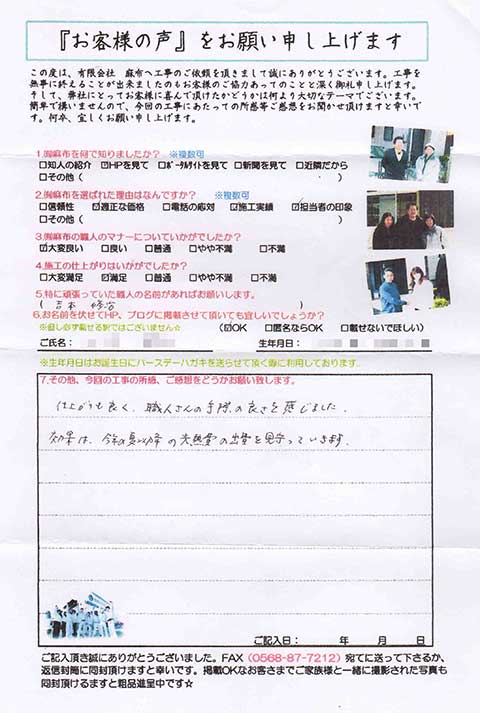 『お客様の声』をお願い申し上げます
この度は、有限会社 麻布へ工事のご依頼を頂きまして誠にありがとうございます。工事を
無事に終えることが出来ましたのもお客様のご協力あってのことと深く御礼申し上げます。
そして、弊社にとってお客様に喜んで頂けたかどうかは何より大切なテーマでございます。
簡単で構いませんので、今回の工事にあたっての所感等ご感想をお聞かせ頂けますと幸いで
す。何卒、宜しくお願い申し上げます。
1.㈲麻布を何で知りましたか？ ※複数可
□知人の紹介 ☑HPを見て □ポータルサイトを見て □新聞を見て □近隣だから
□その他( )
2.㈲麻布を選ばれた理由はなんですか？ ※複数可
□信頼性 ☑適正な価格 □電話の応対 ☑施工実績 ☑担当者の印象
□その他( )
3.㈲麻布の職人のマナーについていかがでしたか？
☑大変良い □良い □普通 □やや不満 □不満
4.施工の仕上がりはいかがでしたか？
□大変満足 ☑満足 □普通 □やや不満 □不満
5.特に頑張っていた職人の名前があればお願いします。
( 吉本 )
6.お名前を伏せてHP、ブログに掲載させて頂いても宜しいでしょうか？
※但し必ず載せる訳ではございません☆ (☑OK □匿名ならOK □載せないでほしい)
ご氏名： 生年月日：
※生年月日はお誕生日にバースデーハガキを送らせて頂く際に利用しております。
7.その他、今回の工事の所感、ご感想をどうかお願い致します。
仕上がりも良く、職人さんの手際の良さを感じました。
効果は、今年の夏以降の光熱費の出費を見守っていきます。
ご記入日： 年 月 日
ご記入頂き誠にありがとうございました。FAX（0568-87-7212）宛てに送って下さるか、
返信封筒に同封頂けますと幸いです。掲載OKなお客さまでご家族様と一緒に撮影された写真も
同封頂けるますと粗品進呈中です☆